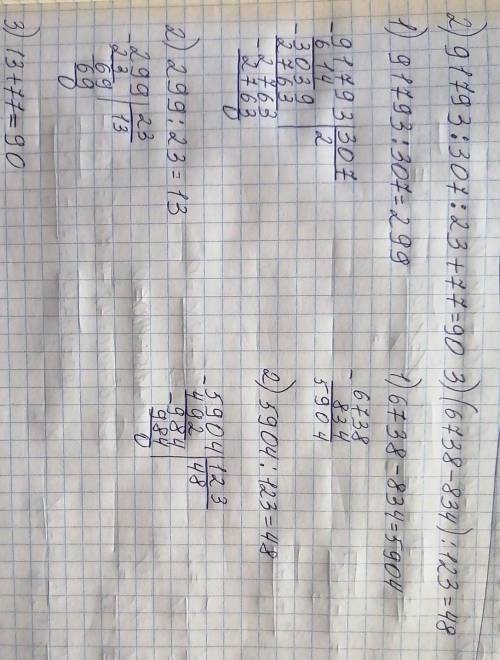 2) 91793:307:23+77=90
1) 91793:307=299
-91793 307
614 2
-3039
2763
-2763
2763
0
2) 299:23=13
-299 23
23 13
-69
69
0
3) 13+77=90
3) (6738-834):123=48
1) 6738-834=5904
-6738
834
5904
2) 5904:123=48
-5904 123
492 48
-984
984
0